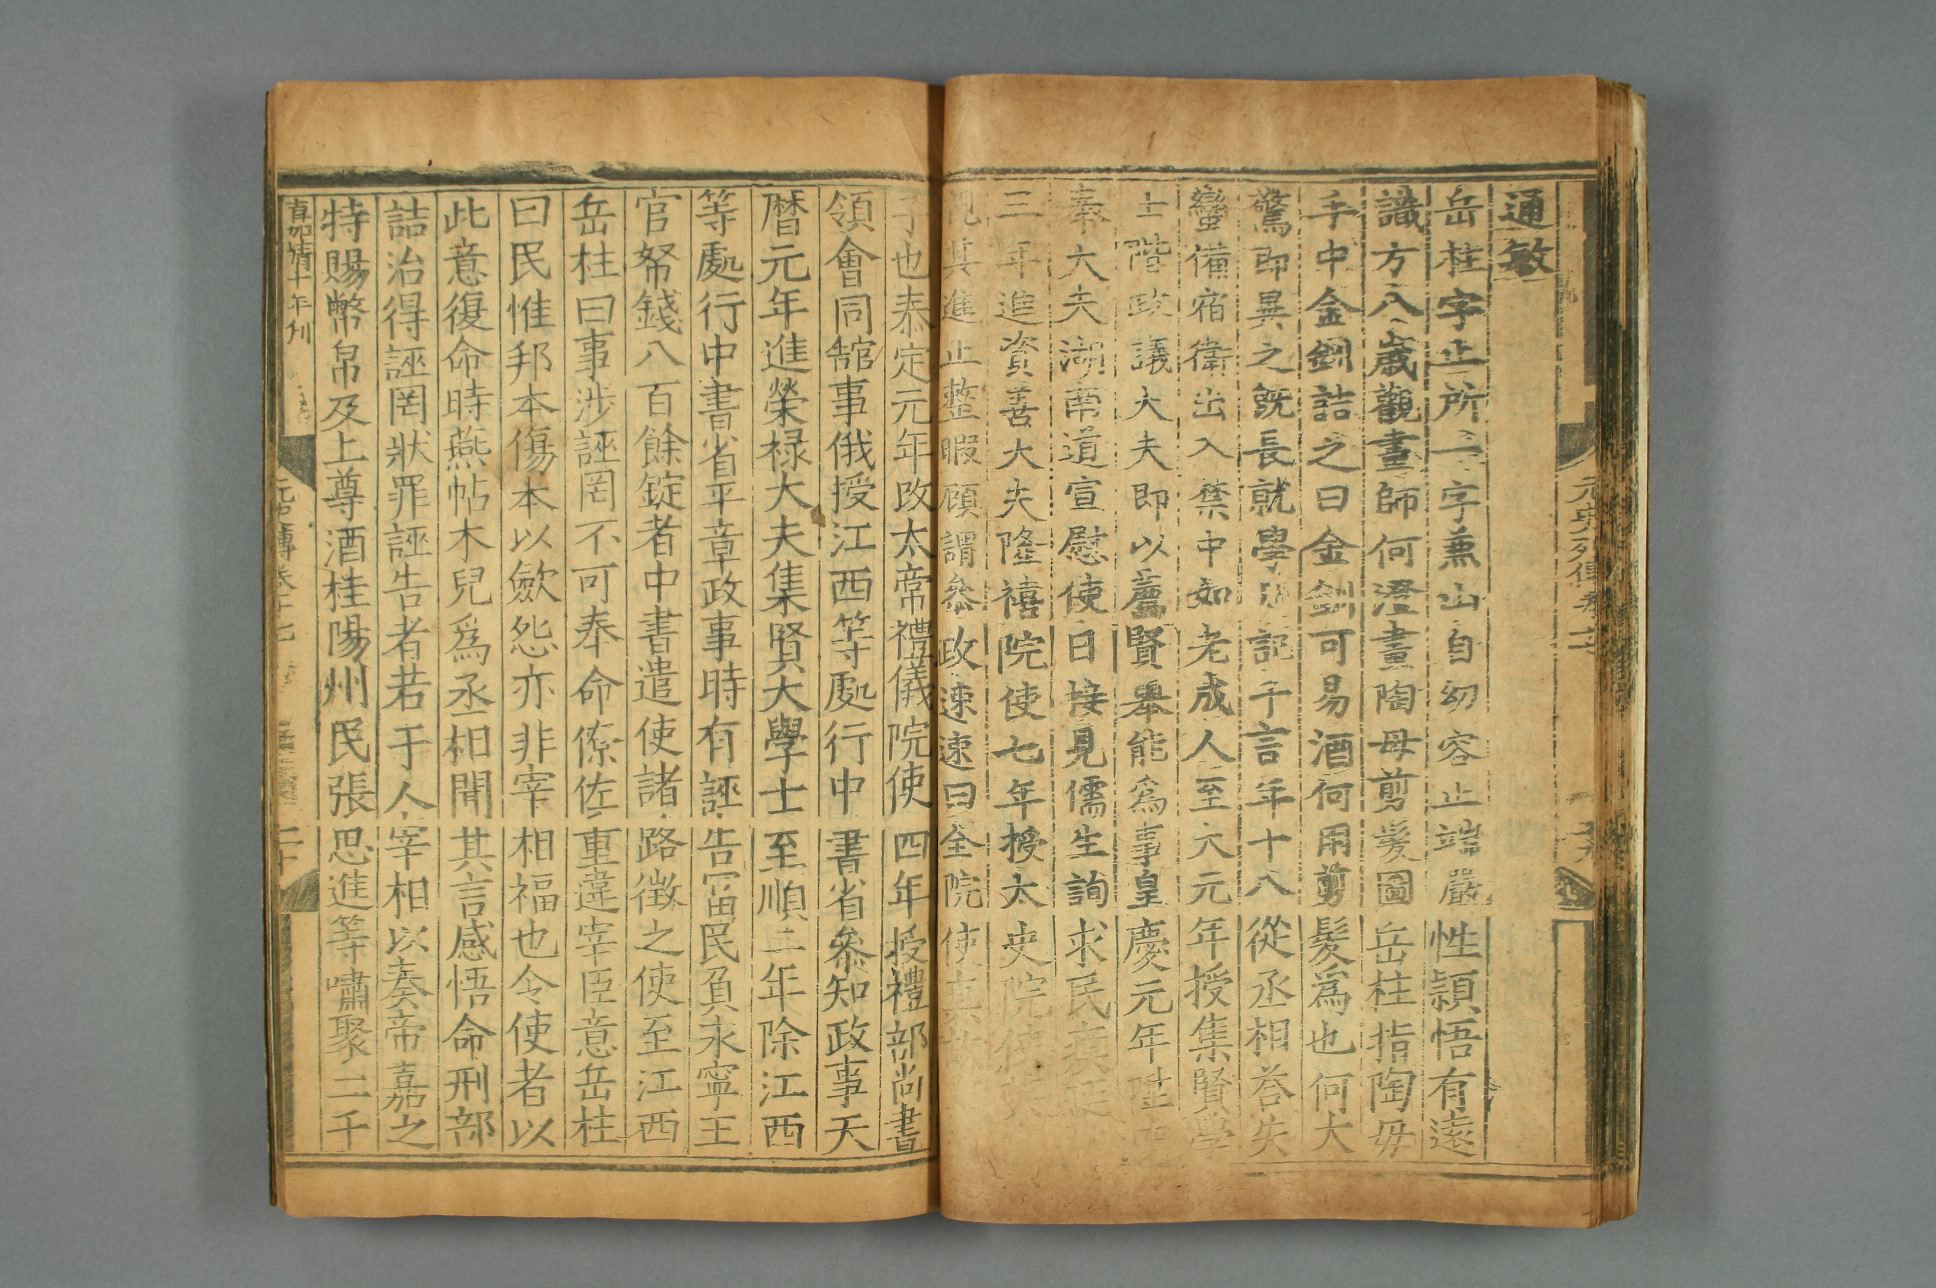 元史列傳卷十七
通敏
岳柱字止所一字蕪山自幼容止端嚴性頴悟有遠
識方八歲觀畫師何澄畫陶母剪髮圖岳柱指陶母
手中金釧詰之曰金釧可易酒何用剪髮爲也何大
驚即異之旣長就學日記千言年十八從丞相荅失
蠻備宿衛出入禁中如老成人至大元年授集賢學
士階政議大夫即以薦賢舉能爲事皇慶元年陞
奉大夫湖南道宣慰使日接見儒生詢求民瘼延
三年進資善大夫隆禧院使七年授太史院使英
其進止整暇顧謂叅政速速曰全院使真
子也泰定元年改太常禮儀院使四年授禮部尚書
領會同舘事俄授江西等處行中書省叅知政事天
曆元年進榮祿大夫集賢大學士至順二年除江西
等處行中書省平章政事時有誣告富民負永寧王
官帑錢八百餘錠者中書遣使諸路徵之使至江西
岳柱曰事涉誣罔不可奉命僚佐重違宰臣意岳柱
曰民惟邦本傷本以斂怨亦非宰相福也令使者以
此意復命時燕帖木兒爲丞相聞其言感悟命刑部
詰治得誣罔狀罪誣告者若干人宰相以奏帝嘉之
特賜幣帛及上尊酒桂陽州民張思進等嘯聚二千
嘉靖十年刊
元史傳卷十七
二十